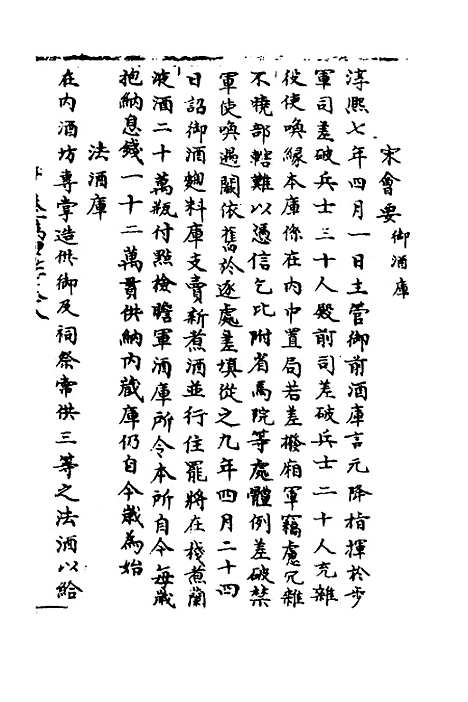 宋會要 御酒庫
淳熙七年四月一日主管御前酒庫言元降指揮於步
軍司差破兵士三十人殿前司差破兵士二十人充雜
役使喚緣本庫係在内中置局若差撥廂軍竊慮冗雜
不曉部轄難以憑信乞比附省馬院等處體例差破禁
軍使喚遇闕依舊於逐處差填從之九年四月二十四
日詔御酒麹料庫支賣新煮酒並行住罷將在棧煮蘭
液酒二十萬瓶付點檢贍軍酒庫所令本所自今每歲
抱納息錢一十二萬貫供納内藏庫仍自今歲為始
法酒庫
在内酒坊專掌造供御及祠祭常供三等之法酒以給